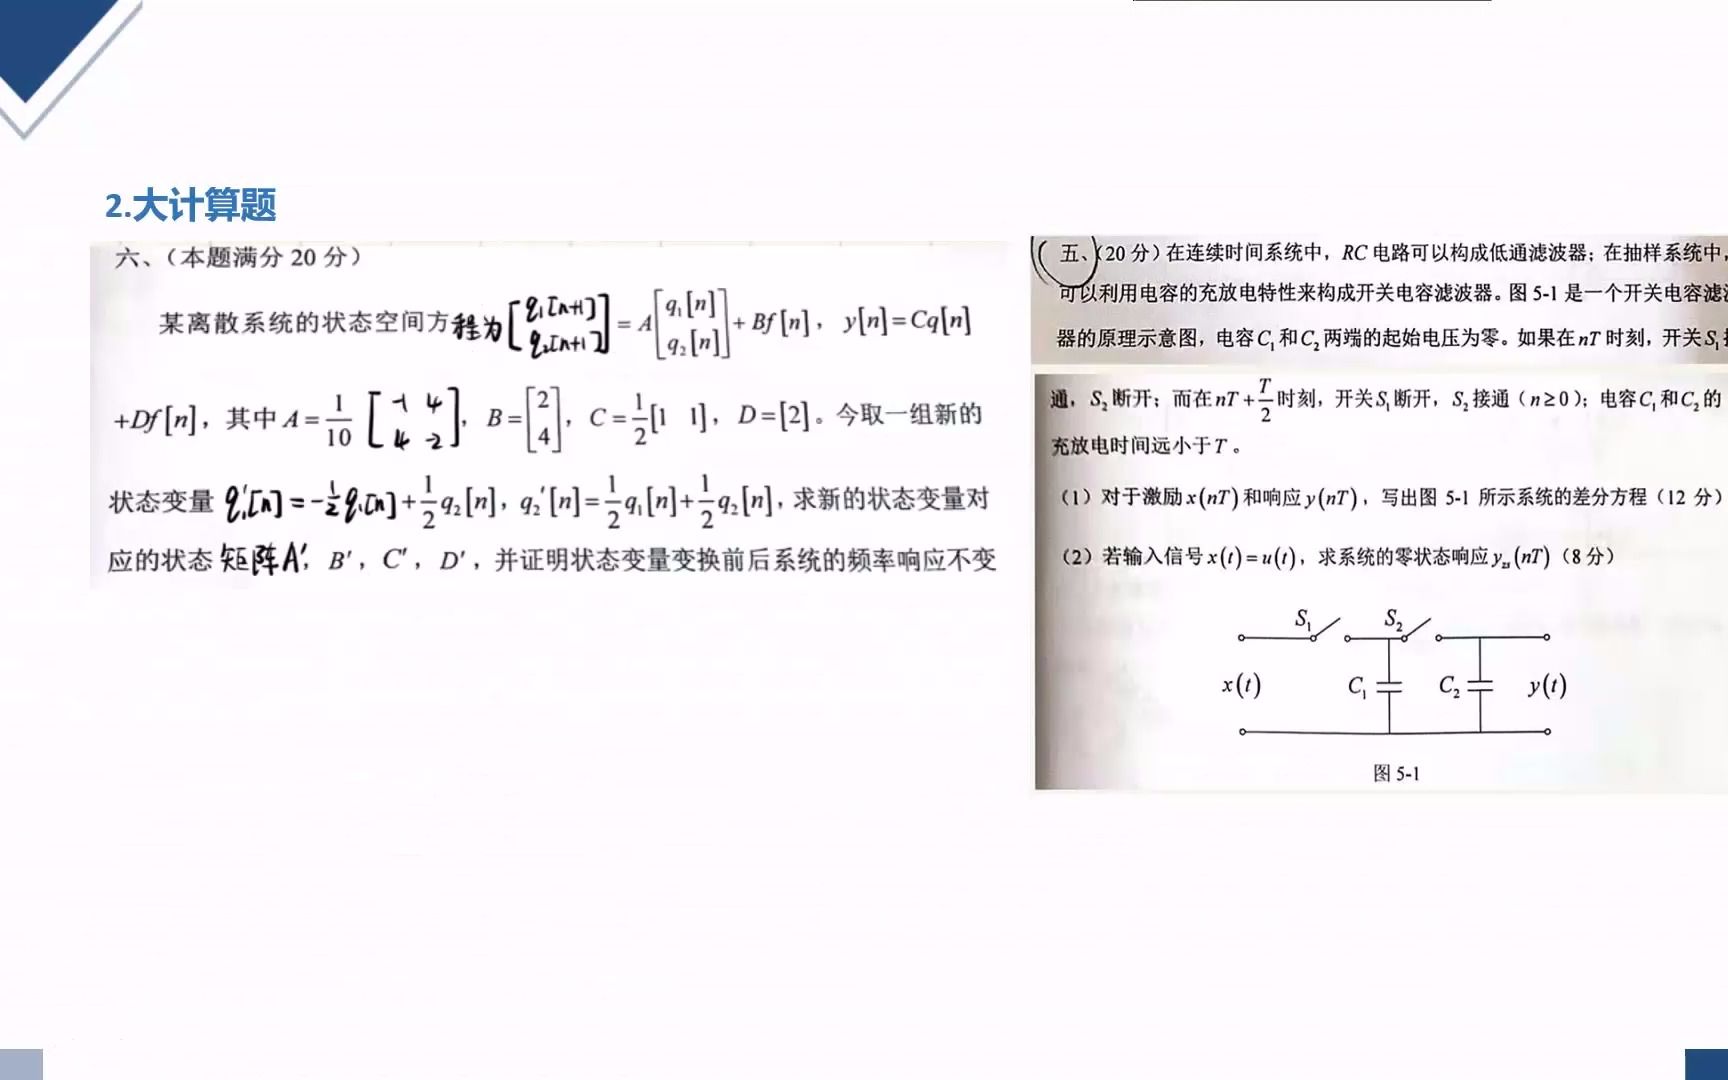 2.大计算题
六、（本题满分 20 分）
某离散系统的状态空间方程为 [q₁[n+1] q₂[n+1]] = A[q₁[n] q₂[n]] + Bf[n]，y[n]=Cq[n]
+Df[n]，其中 A=1/10 [-1 4 4 -2]，B=[2 4]，C=1/2[1 1]，D=[2]。今取一组新的
状态变量 q₁′[n]=-1/2q₁[n]+1/2q₂[n]，q₂′[n]=1/2q₁[n]+1/2q₂[n]，求新的状态变量对
应的状态矩阵A′，B′，C′，D′，并证明状态变量变换前后系统的频率响应不变
五、（20 分）在连续时间系统中，RC 电路可以构成低通滤波器；在抽样系统中，
可以利用电容的充放电特性来构成开关电容滤波器。图 5-1 是一个开关电容滤
器的原理示意图，电容C₁和C₂两端的起始电压为零。如果在nT 时刻，开关S₁
通，S₂断开；而在nT+T/2时刻，开关S₁断开，S₂接通（n≥0）；电容C₁和C₂的
充放电时间远小于T。
（1）对于激励x(nT)和响应y(nT)，写出图 5-1 所示系统的差分方程（12 分）
（2）若输入信号x(t)=u(t)，求系统的零状态响应y_zs(nT)（8 分）
S₁ S₂
x(t) C₁ C₂ y(t)
图 5-1